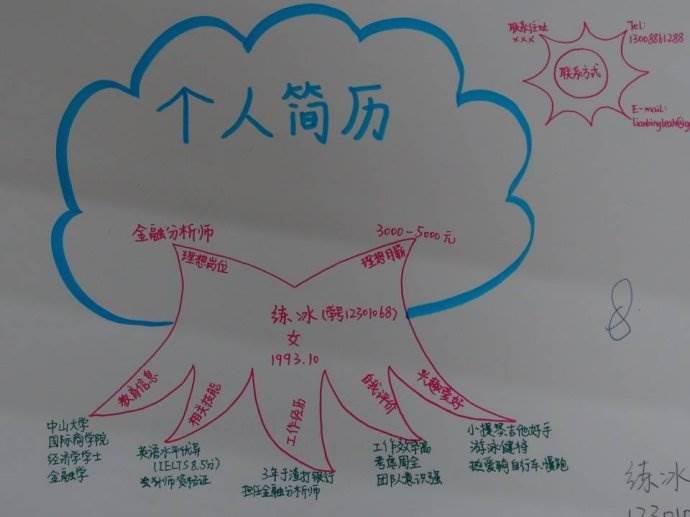 个人简历
联系住址
xxx
Tel:
13008861288
联系方式
E-mail:
金融分析师
理想岗位
3000-5000元
理想月薪
练冰(学号12301068)
女
1993.10
8
教育信息
相关技能
工作经历
自我评价
兴趣爱好
中山大学
国际商学院
经济学学士
金融学
英语水平优异
(IELTS 8.5分)
会计师资格证
3年于渣打银行
担任金融分析师
工作效率高
考虑周全
团队意识强
小提琴吉他好手
游泳健将
热爱骑自行车、慢跑
练冰